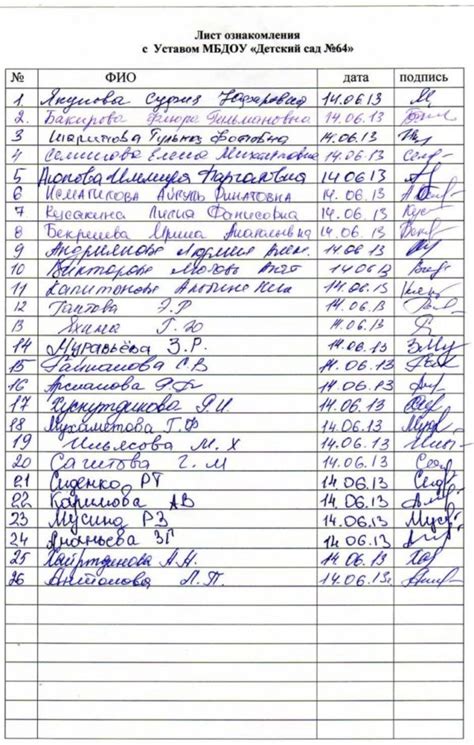 Лист ознакомления
с Уставом МБДОУ «Детский сад №64»
№ ФИО дата подпись
1 Якупова 14.06.13
2. Бакирова Флюра 14.06.13
3 Шарипова Гульназ Фатовна 14.06.13
4 Семенова Елена Михайловна 14.06.13
5 14.06.13
6 Исмагилова Айгуль Ринатовна 14.06.13
7 Кусакина Лилия Фанисовна 14.06.13 Кус
8 Бекрешева Ирина Анатольевна 14.06.13
9 Андриянова Людмила 14.06.13
10 Викторова Любовь 14.06.13
11 Капитонова Альбина 14.06.13
12 Таптова Э.Р 14.06.13
13 Яхина Г.Ю 14.06.13
14 Муравьёва З.Р. 14.06.13 ЗМу
15 С В 14.06.13
16 Арсланова Р.Р 14.06.13
17 Хуснутдинова Р.И. 14.06.13
18 Мухаметова Г.Ф 14.06.13
19 Ильясова М.Х 14.06.13
20 Сагитова Г.М 14.06.13
21 Сиденко РТ 14.06.13
22 Каримова АВ 14.06.13
23 Мусина РЗ 14.06.13 Мус
24 Ананьева ЗГ 14.06.13
25 Хайртдинова А.Н. 14.06.13 Хай
26 Антонова Л.П. 14.06.13